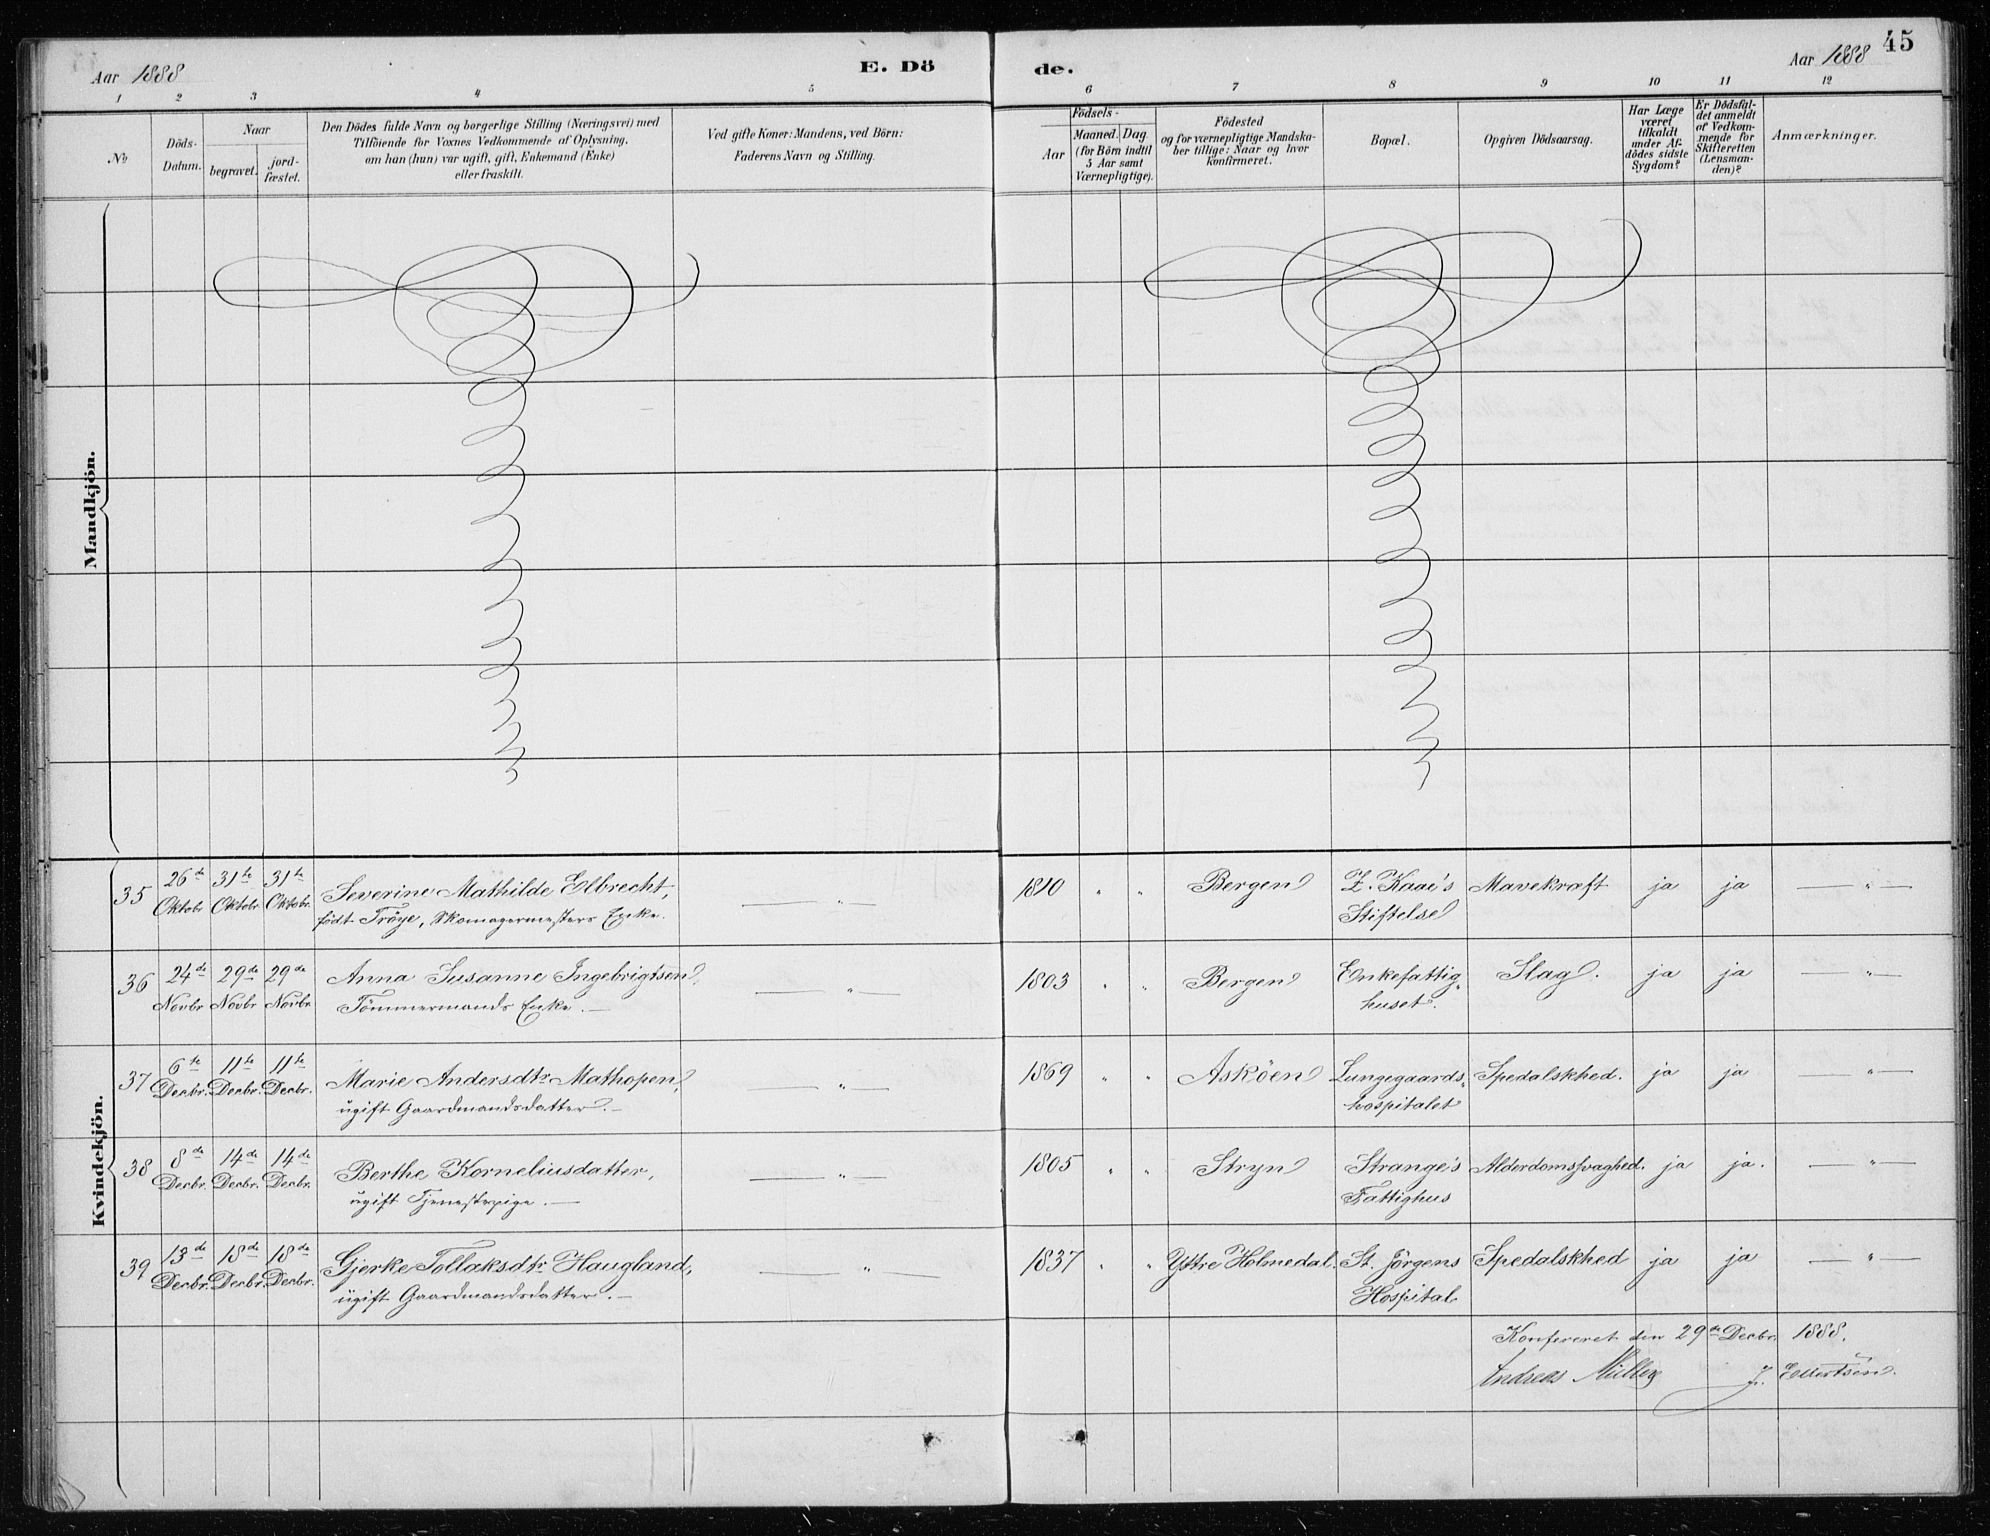 45
Aar 1888
E. Dö
de.
Aar 1888
1 2 3 4 5 6 7 8 9 10 11 12
No
Döds-
Datum.
Naar
begravet.
jord-
fæstet.
Den Dödes fulde Navn og borgerlige Stilling (Næringsvei) med
Tilföiende for Voxnes Vedkommende af Oplysning,
om han (hun) var ugift, gift, Enkemand (Enke)
eller fraskilt.
Ved gifte Koner: Mandens, ved Börn:
Faderens Navn og Stilling.
Födsels-
Aar
Maaned. Dag.
(for Börn indtil
5 Aar samt
Værnepligtige).
Födested
og for værnepligtige Mandska-
ber tillige: Naar og hvor
konfirmeret.
Bopæl.
Opgiven Dödsaarsag.
Har Læge
været
tilkaldt
under Af-
dödes sidste
Sygdom?
Er Dödsfal-
det anmeldt
af Vedkom-
mende for
Skifteretten
(Lensman-
den)?
Anmærkninger.
Mandkjön.
Kvindekjön.
35 26de 31te 31te Severine Mathilde Elbrecht, — " — 1810 " " Bergen Z. Kaae's Mavekræft ja ja — " —
Oktobr Oktobr Oktobr. født Trøye, Skomagermesters Enke. Stiftelse
36 24de 29de 29de Anna Susanne Ingebrigtsen, — " — 1803 " " Bergen Enkefattig- Slag. ja ja " —
Novbr Novbr Novbr. Tömmermands Enke. — huset.
37 6te 11te 11te Marie Andersdtr Mathopen, — " — 1869 " " Asköen Lungegaards- Spedalskhed. ja ja — " —
Decbr. Decbr. Decbr. ugift Gaardmandsdatter. — hospitalet
38 8de 14de 14de Berthe Korneliusdatter, — " — 1805 " " Stryn Strange's Alderdomssvaghed. ja ja. — " —
Decbr. Decbr. Decbr. ugift Tjenestepige. — Fattighus
39 13de 18de 18de Gjerke Tollaksdtr Haugland, — " — 1837 " " Yttre Holmedal. St. Jörgens Spedalskhed ja ja — " —
Decbr. Decbr. Decbr. ugift Gaardmandsdatter. — Hospital
Konfereret den 29de Decbr. 1888.
Andreas Müller J. Ellertsen.